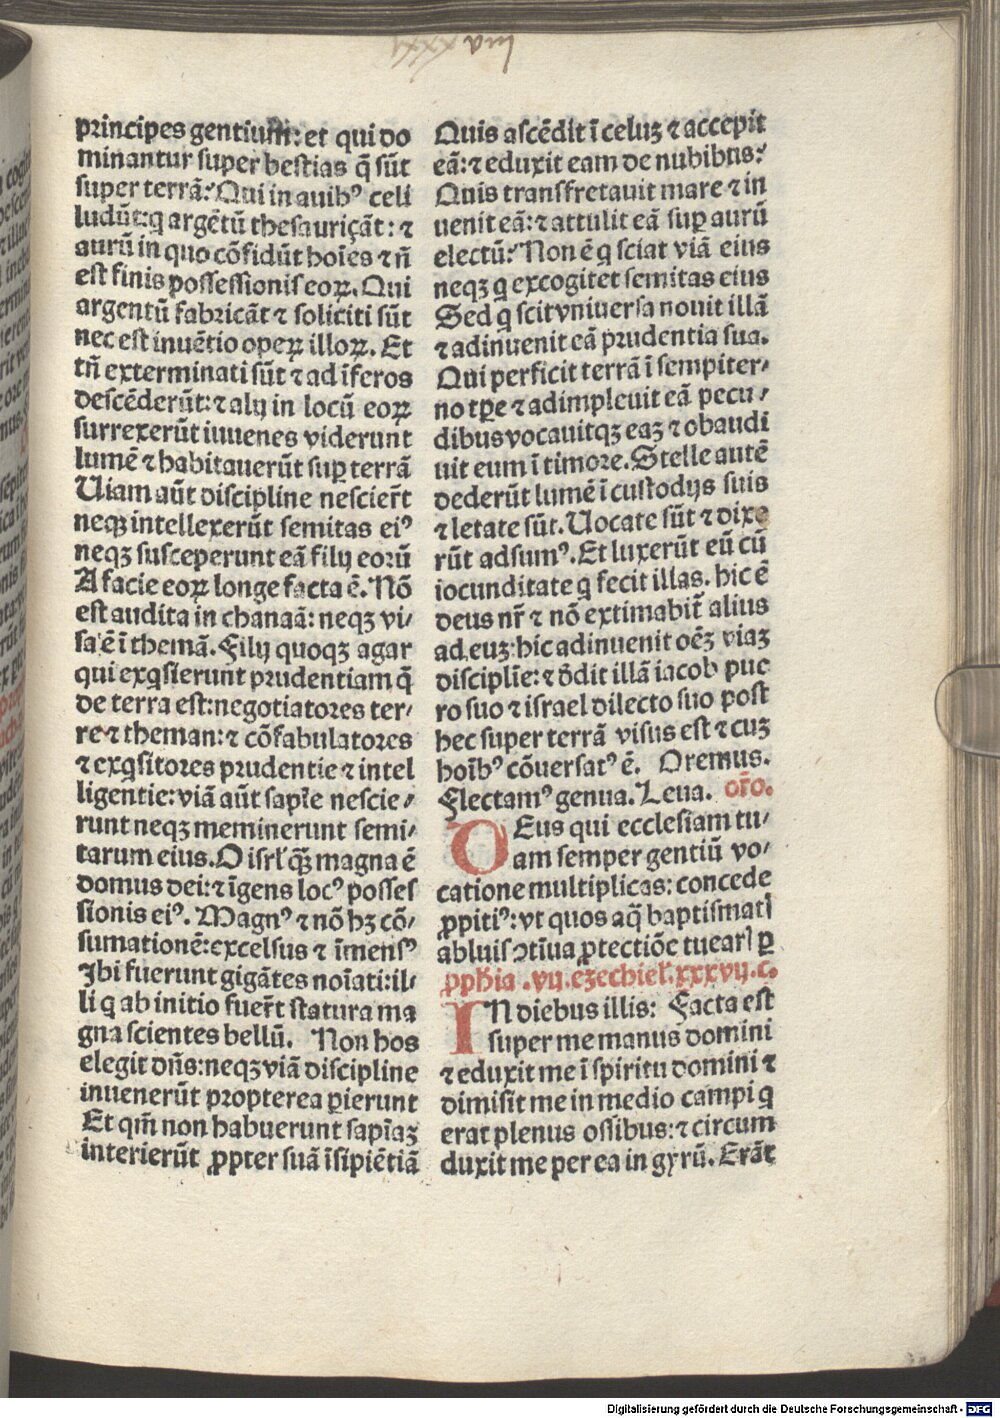 principes gentium: et qui do
minantur super bestias q̄ sūt
super terrā. Qui in auibꝰ celi
ludūt: q̨ argētū thesauriçāt: ⁊
aurū in quo cōfidūt hoīes ⁊ nō̄
est finis possessionis eoꝝ. Qui
argentū fabricāt ⁊ soliciti sūt
nec est inuētio opeꝝ illoꝝ. Et
tn̄ exterminati sūt ⁊ ad īferos
descēderūt: ⁊ alij in locū eoꝝ
surrexerūt iuuenes viderunt
lumē ⁊ habitauerūt suꝑ terrā
Uiam aūt discipline nescier̄t
neqꝫ intellexerūt semitas eiꝰ
neqꝫ susceperunt eā filij eorū
A facie eoꝝ longe facta ē. Nō
est audita in chanaā: neqꝫ vi/
sa ē ī themā. Filij quoqꝫ agar
qui exq̨sierunt prudentiam q̄
de terra est: negotiatores ter/
re ⁊ theman: ⁊ cōfabulatores
⁊ exq̨sitores prudentie ⁊ intel
ligentie: viā aūt sapīe nescie/
runt neqꝫ meminerunt semi/
tarum eius. O isrl̄ q̄ꝫ magna ē
domus dei: ⁊ īgens locꝰ posses
sionis eiꝰ. Magnꝰ ⁊ nō hꝫ cō/
sumationē: excelsus ⁊ īmensꝰ
Ibi fuerunt gigātes noīati: il/
li q̨ ab initio fuer̄t statura ma
gna scientes bellū. Non hos
elegit dn̄s: neqꝫ viā discipline
inuenerūt propterea ꝑierunt
Et qm̄ non habuerunt sapīaꝫ
interierūt ꝓpter suā īsipiētiā
Quis ascēdit ī celuꝫ ⁊ accepit
eā: ⁊ eduxit eam de nubibus.
Quis transfretauit mare ⁊ in
uenit eā: ⁊ attulit eā suꝑ aurū
electū. Non ē q̨ sciat viā eius
neqꝫ q̨ excogitet semitas eius
Sed q̨ scit vniuersa nouit illā
⁊ adinuenit eā prudentia sua.
Qui perficit terrā ī sempiter/
no tꝑe ⁊ adimpleuit eā pecu/
dibus vocauitqꝫ eaꝫ ⁊ obaudi
uit eum ī timore. Stelle autē
dederūt lumē ī custodijs suis
⁊ letate sūt. Uocate sūt ⁊ dixe
rūt adsumꝰ. Et luxerūt eū cū
iocunditate q̨ fecit illas. hic ē
deus nr̄ ⁊ nō extimabit̄ alius
ad. euꝫ: hic adinuenit oēꝫ viaꝫ
disciplīe: ⁊ ōdit illā iacob pue
ro suo ⁊ israel dilecto suo post
hec super terrā visus est ⁊ cuꝫ
hoībꝰ cōuersatꝰ ē. Oremus.
Flectamꝰ genua. Leua. or̄o.
DEus qui ecclesiam tu/
am semper gentiū vo/
catione multiplicas: concede
ꝓpitiꝰ: vt quos aq̄ baptismatꝭ
abluis ↄtīua ꝓtectiōe tuearꝭ ꝑ
ꝓph̄ia .vij. ezechiel̓. xxxvij. c.
IN diebus illis: Facta est
super me manus domini
⁊ eduxit me ī spiritu domini ⁊
dimisit me in medio campi q̨
erat plenus ossibus: ⁊ circum
duxit me per ea in gyrū. Erāt
Digitalisierung gefördert durch die Deutsche Forschungsgemeinschaft - DFG